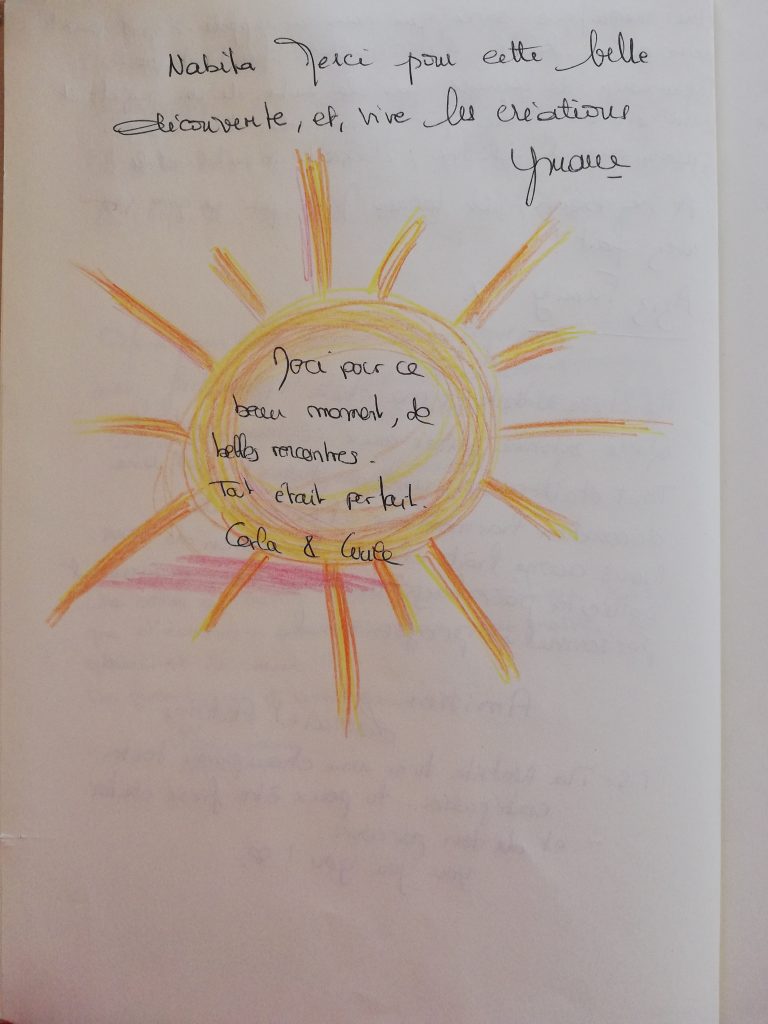 Nabila Merci pour cette belle
découverte, et, vive les créations
Merci pour ce
beau moment, de
belles rencontres.
Tout était parfait.
Carla &